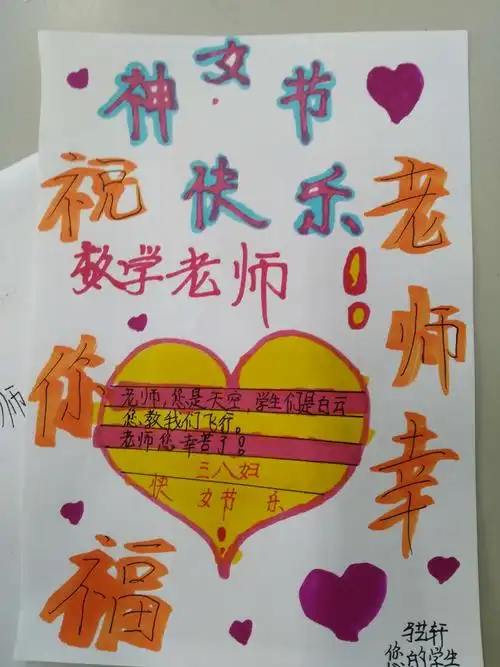 神女节
快乐!
数学老师
祝
你
福
老
师
幸
老师,您是天空,学生们是白云
您教我们飞行。
老师您幸苦了!
三八妇
快女节乐
!
艺轩
您的学生
师